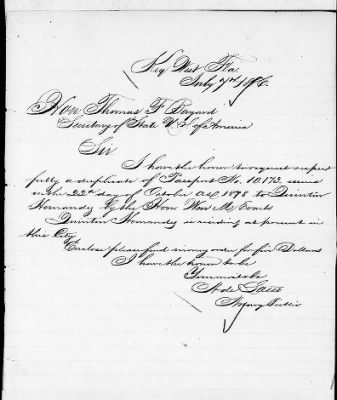 Key West Fla.
July 7th 1886.
Hon. Thomas F Bayard
Secretary of State U. S. of America
Sir
I have the honor to request respect
fully a duplicate of Passport No. 10172. issued
in the 22d day of October A.D. 1878 to Quintin
Hernandez by the Hon Wm M. Evarts
Quintin Hernandez is residing at present in
this City.
Enclose please find money order for five Dollars
I have the honor to be
Yours
Notary Public